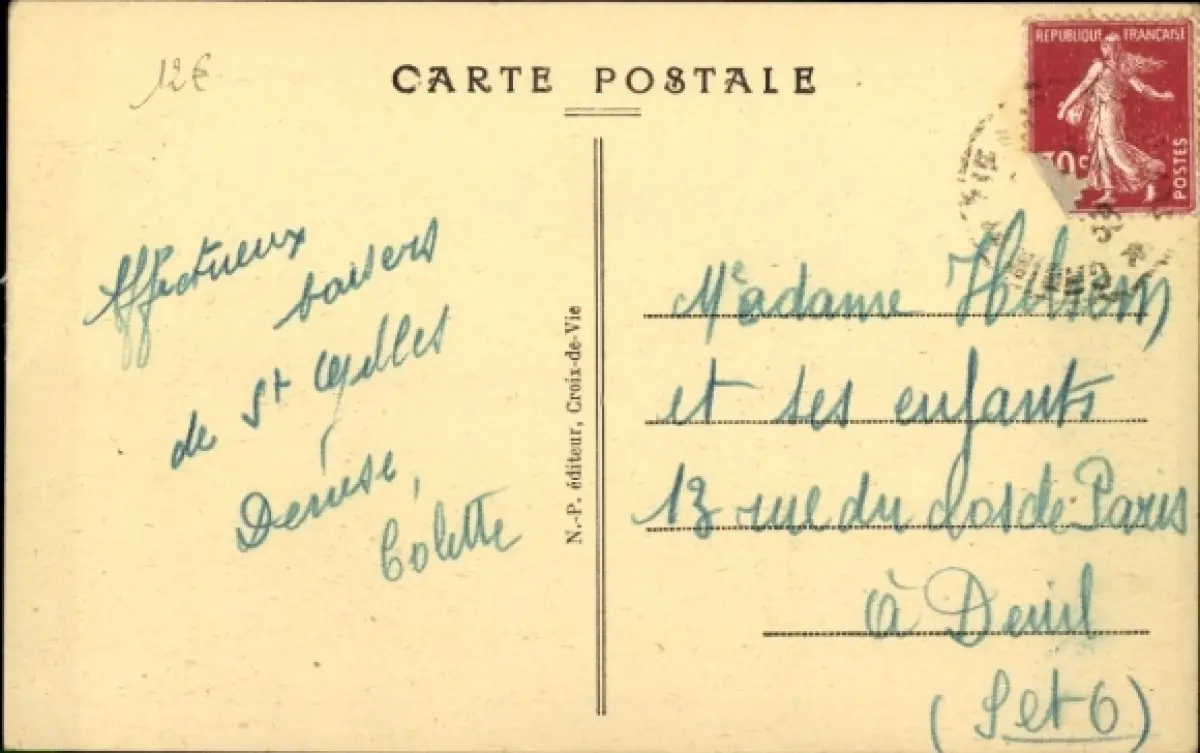 12€
CARTE POSTALE
REPUBLIQUE FRANÇAISE
30c
POSTES
Affectueux
baisers
de St Gilles
Denise,
Colette
N.-P. éditeur, Croix-de-Vie
Madame
et ses enfants
13 rue du Clos de Paris
à Deuil
(S et O)